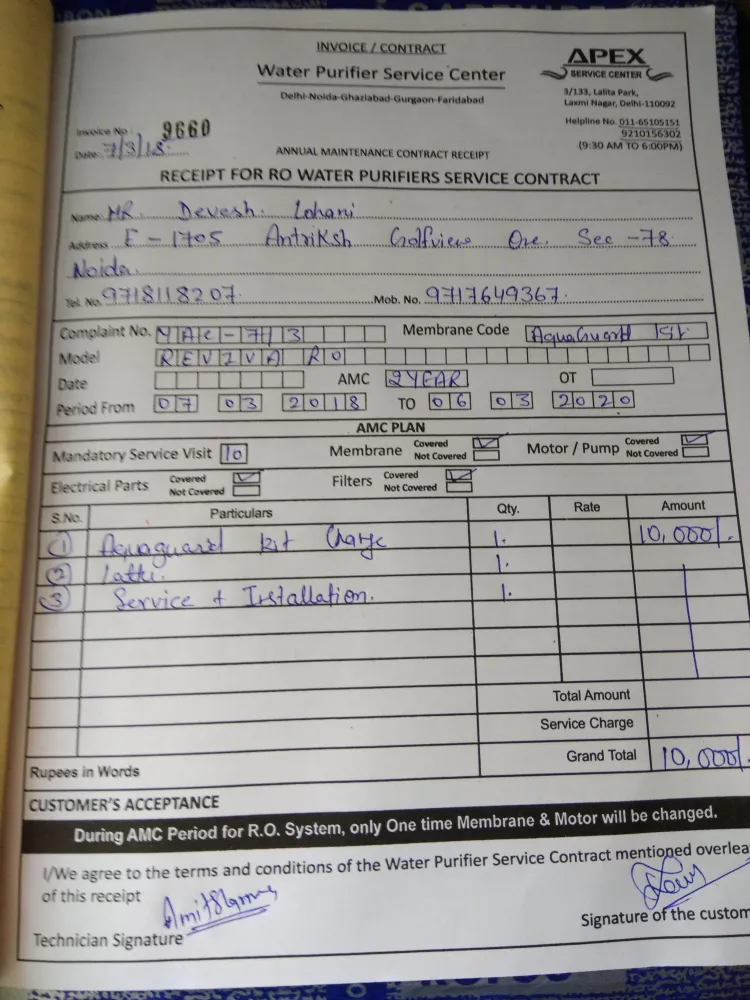 INVOICE / CONTRACT
Water Purifier Service Center
Delhi-Noida-Ghaziabad-Gurgaon-Faridabad
APEX
SERVICE CENTER
3/133, Lalita Park,
Laxmi Nagar, Delhi-110092
Helpline No. 011-65105151
9210156302
(9:30 AM TO 6:00PM)
Invoice No. 9660
Date: 7/3/18
ANNUAL MAINTENANCE CONTRACT RECEIPT
RECEIPT FOR RO WATER PURIFIERS SERVICE CONTRACT
Name: MR. Devesh. Lohani
Address E-1705 Antriksh Golfview One. Sec-78.
Noida.
Tel. No. 9718118207. Mob. No. 9717649367.
Complaint No. Membrane Code AquaGuard
Model REVIVA RO
Date AMC 2YEAR OT
Period From 07 03 2018 TO 06 03 2020
AMC PLAN
Mandatory Service Visit 10 Membrane Covered Not Covered Motor / Pump Covered Not Covered
Electrical Parts Covered Not Covered Filters Covered Not Covered
S.No. Particulars Qty. Rate Amount
① Aquaguard kit Charge 1. 10,000/.
② 1.
③ Service + Installation. 1.
Total Amount
Service Charge
Grand Total 10,000/.
Rupees in Words
CUSTOMER'S ACCEPTANCE
During AMC Period for R.O. System, only One time Membrane & Motor will be changed.
I/We agree to the terms and conditions of the Water Purifier Service Contract mentioned overlea
of this receipt
Technician Signature
Signature of the custom